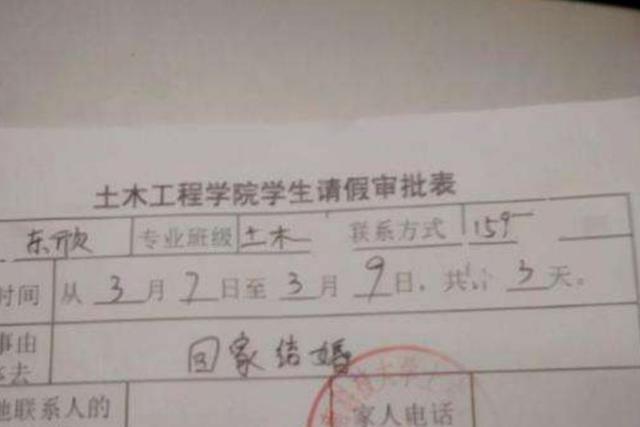 土木工程学院学生请假审批表
东欣 专业班级 土木 联系方式 159
时间 从 3 月 7 日至 3 月 9 日，共计 3 天。
事由 回家结婚
去
地联系人的 家人电话